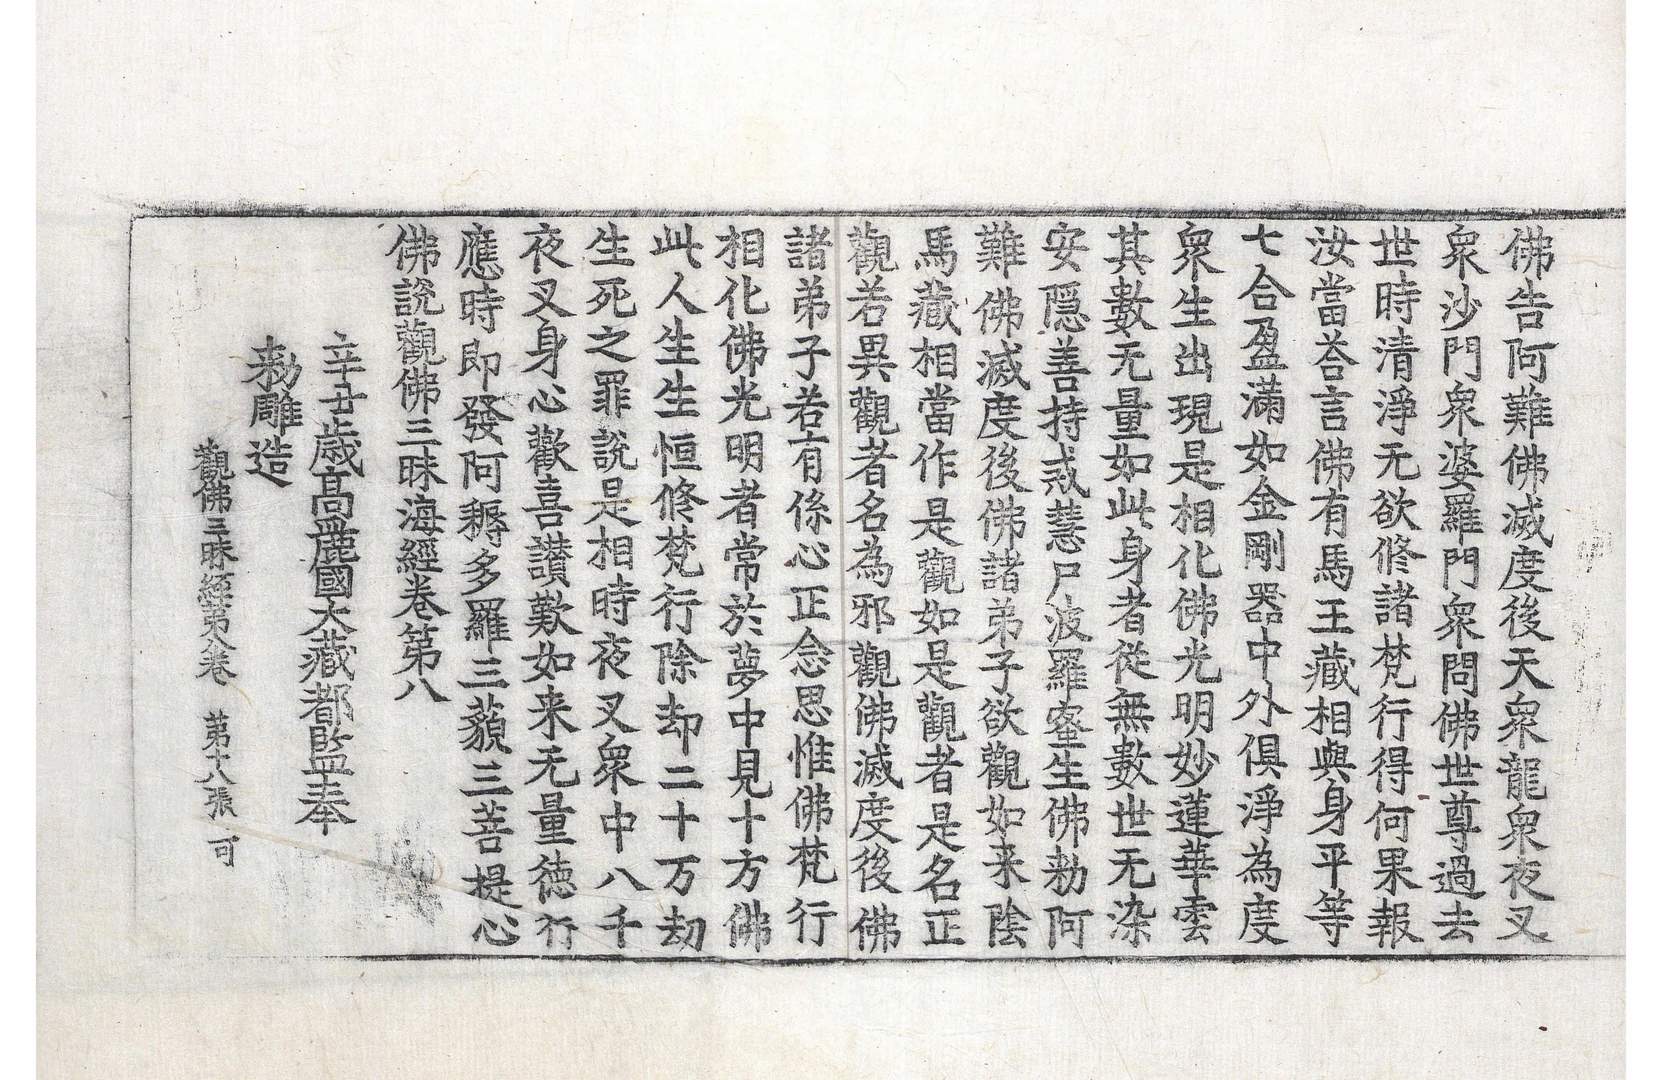 佛告阿難佛滅度後天衆龍衆夜叉
衆沙門衆婆羅門衆問佛世尊過去
世時清淨无欲修諸梵行得何果報
汝當荅言佛有馬王藏相與身平等
七合盈滿如金剛器中外俱淨為度
衆生出現是相化佛光明妙蓮華雲
其數无量如此身者從無數世无染
安隱善持戒慧尸波羅蜜生佛勑阿
難佛滅度後佛諸弟子欲觀如来陰
馬藏相當作是觀如是觀者是名正
觀若異觀者名為邪觀佛滅度後佛
諸弟子若有係心正念思惟佛梵行
相化佛光明者常於夢中見十方佛
此人生生恒修梵行除却二十万劫
生死之罪說是相時夜叉衆中八千
夜叉身心歡喜讃歎如来无量德行
應時即發阿耨多羅三藐三菩提心
佛說觀佛三昧海經卷第八
辛丑歲高麗國大藏都監奉
勑雕造
觀佛三昧經第八卷 第十八張 可